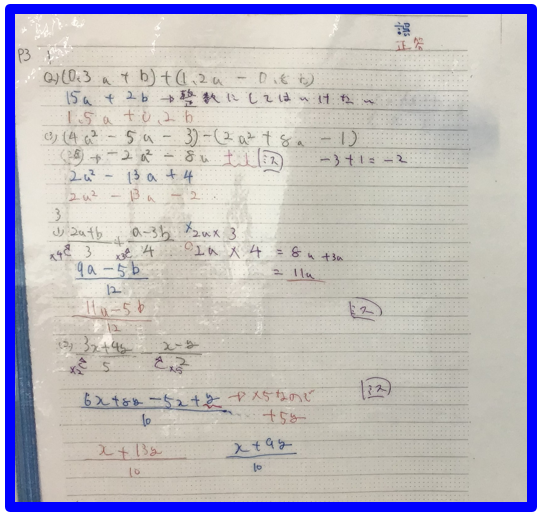 誤
正答
P3
(2) (0.3a + b) + (1.2a - 0.8b)
15a + 2b → 整数にしてはいけない
1.5a + 0.2b
(3) (4a² - 5a - 3) - (2a² + 8a - 1)
→ -2a² - 8a +1 ミス -3+1=-2
2a² - 13a + 4
2a² - 13a - 2
3
(1) 2a+b/3 + a-3b/4 × 2a×3
×4を ×3を ○ 2a × 4 = 8a +3a
9a-5b/12 = 11a
11a-5b/12 ミス
(2) 3x+4y/5 - x-y/2
×2を を×5
6x+8y-5x+y/10 → ×5なので ミス
+5y
x+13y/10 x+9y/10